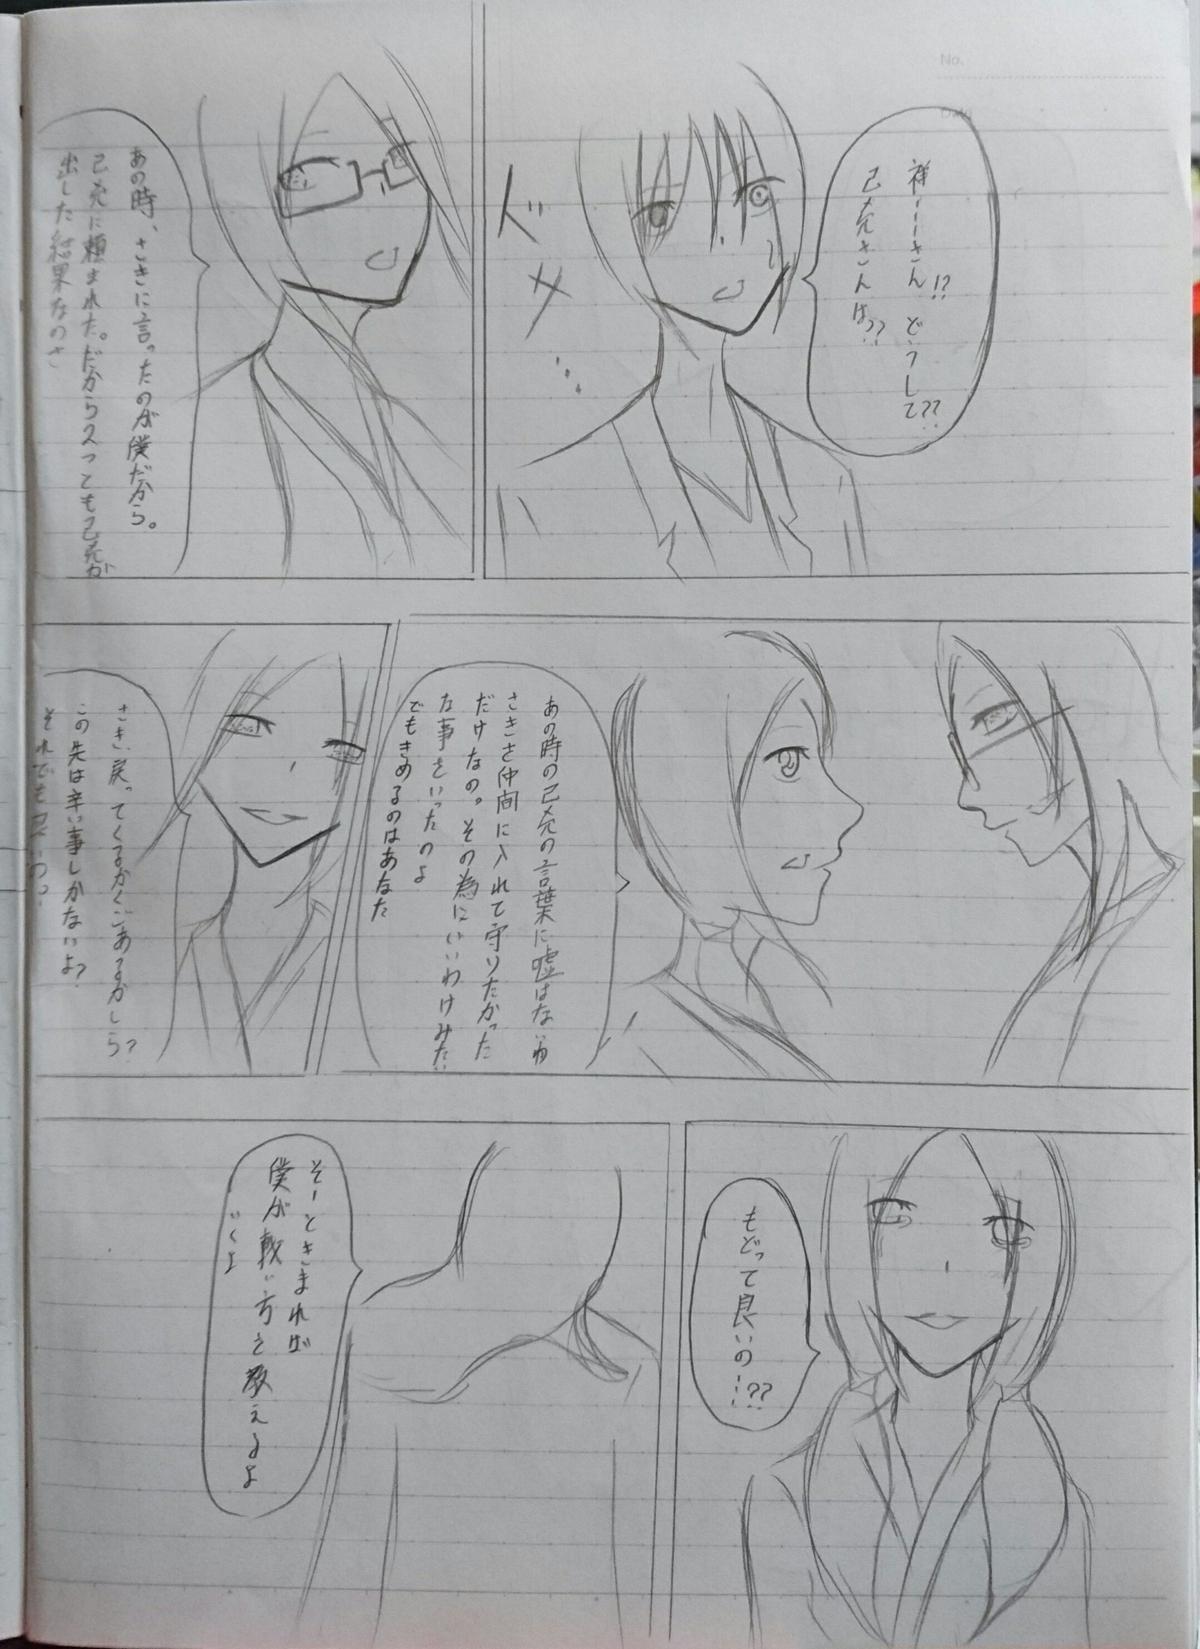 No.
Date
祥ーーさん!? どうして??
己克さんは??
ドメ...
あの時、さきに言ったのが僕だから。
己克に頼まれた。だから2つとも己克が
出した結果なのさ
あの時の己克の言葉に嘘はないわ
さきを仲間に入れて守りたかった
だけなの。その為にいいわけみたい
な事をいったのよ
でもきめるのはあなた
さき、戻ってくるかくごあるかしら?
この先は辛い事しかないよ?
それでも
もどって良いの…!??
そーときまれば
僕が戦い方を教えるよ
いくよ